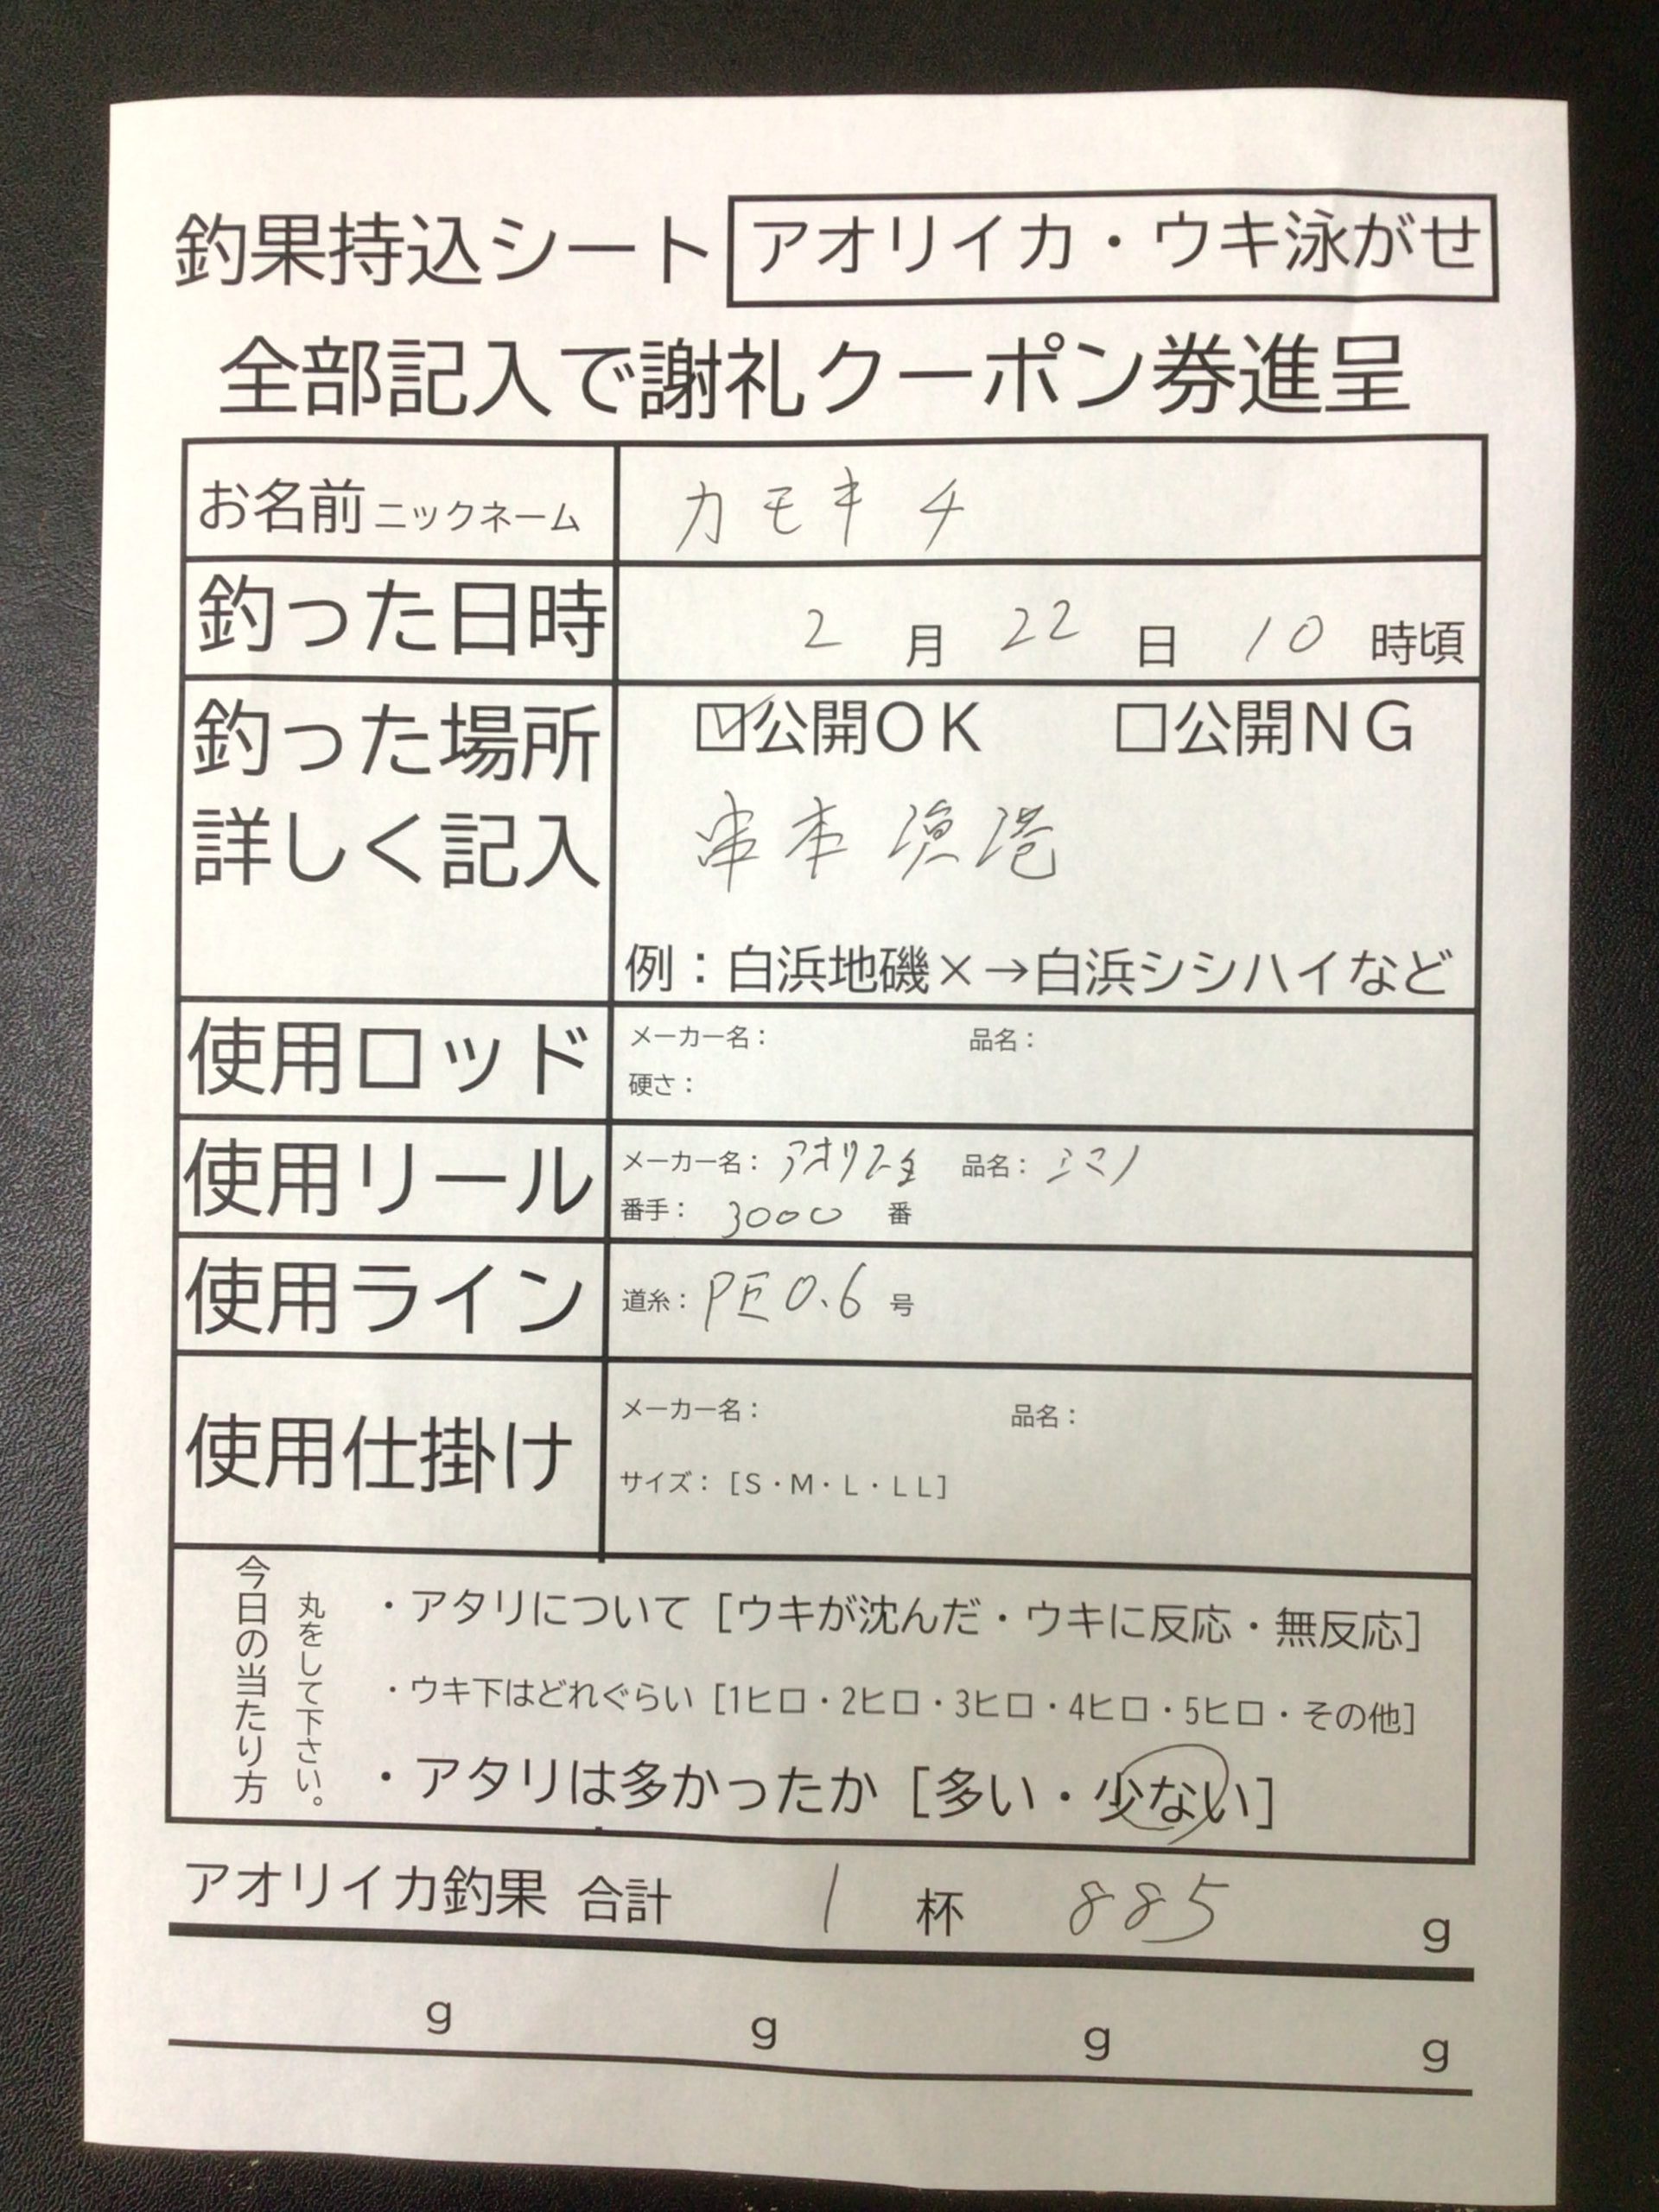 釣果持込シート アオリイカ・ウキ泳がせ
全部記入で謝礼クーポン券進呈
お名前 ニックネーム カモキチ
釣った日時 2 月 22 日 10 時頃
釣った場所 ☑公開OK □公開NG
詳しく記入 串本漁港
例：白浜地磯×→白浜シシハイなど
使用ロッド メーカー名： 品名：
硬さ：
使用リール メーカー名： 品名：シマノ
番手： 3000 番
使用ライン 道糸：PE0.6 号
使用仕掛け メーカー名： 品名：
サイズ：[S・M・L・LL]
今日の当たり方
丸をして下さい。
・アタリについて［ウキが沈んだ・ウキに反応・無反応］
・ウキ下はどれぐらい［1ヒロ・2ヒロ・3ヒロ・4ヒロ・5ヒロ・その他］
・アタリは多かったか［多い・少ない］
アオリイカ釣果 合計 1 杯 885 g
g g g g